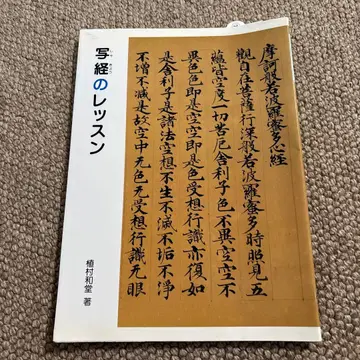 写経のレッスン
植村和堂 著
摩訶般若波羅蜜多心経
觀自在菩薩行深般若波羅蜜多時照見五
蘊皆空度一切苦厄舎利子色不異空空不
異色色即是空空即是色受想行識亦復如
是舎利子是諸法空想不生不滅不垢不浄
不増不減是故空中无色无受想行識无眼